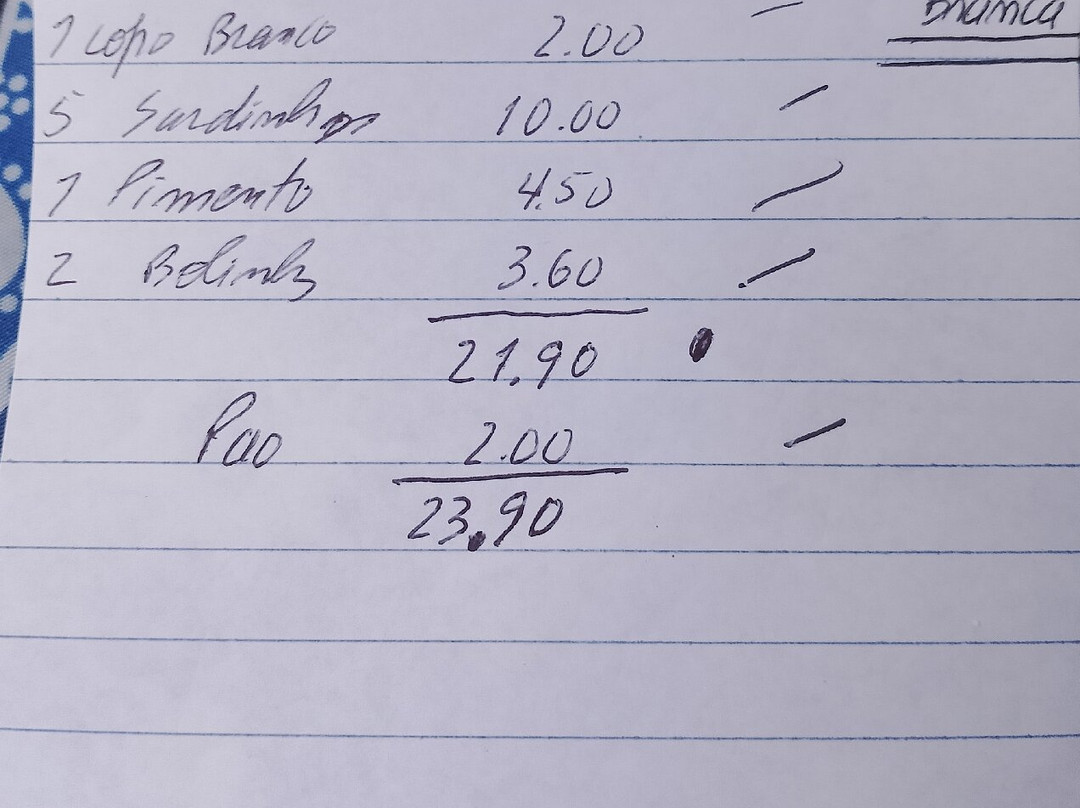 Branca
1 copo Branco 2.00
5 Sardinhas 10.00
1 Pimento 4.50
2 Bolinhs 3.60
21.90
Pao 2.00
23.90